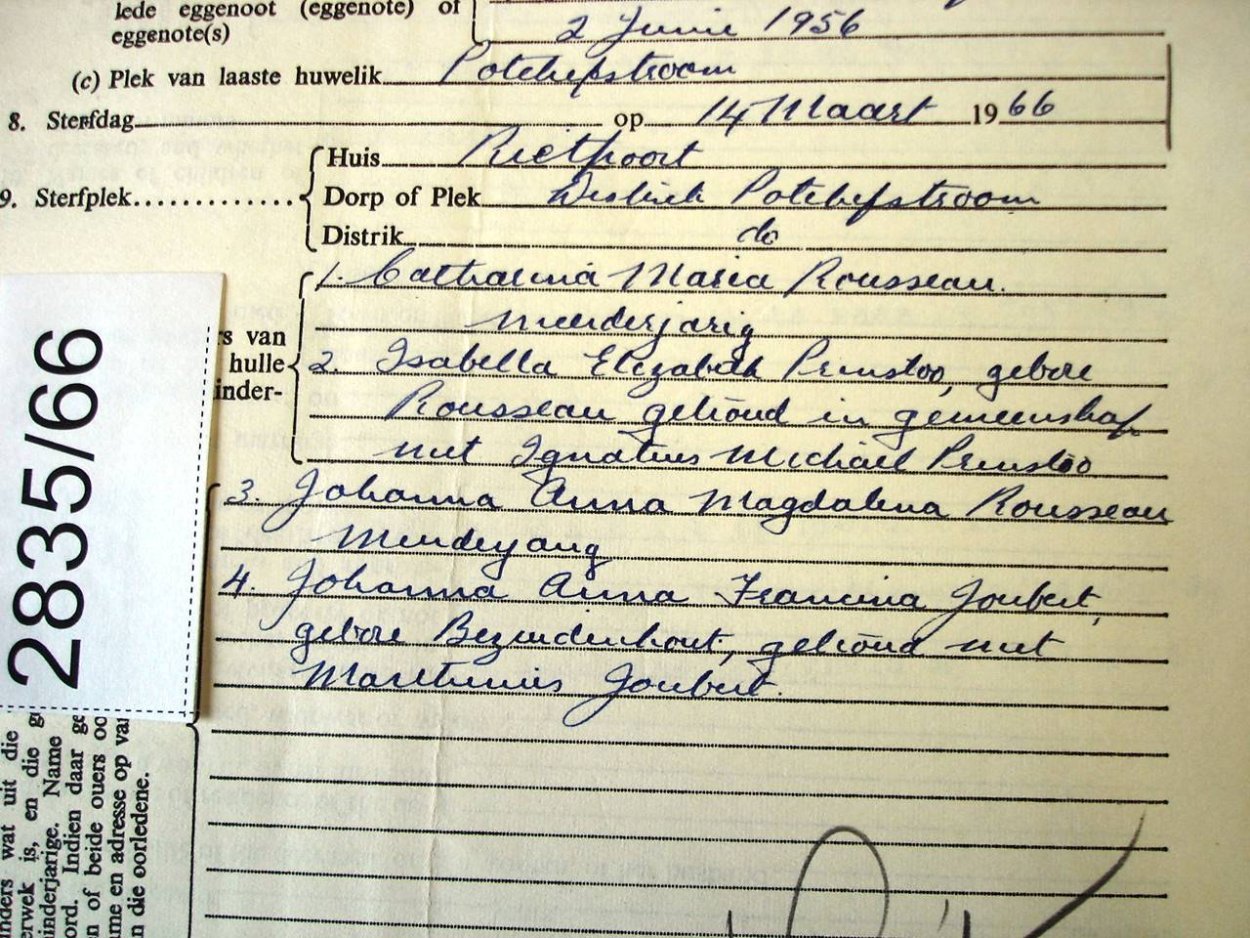 lede eggenoot (eggenote) of
eggenote(s)
2 Junie 1956
(c) Plek van laaste huwelik Potchefstroom
8. Sterfdag op 14 Maart 1966
9. Sterfplek
Huis Rietpoort
Dorp of Plek Distrik Potchefstroom
Distrik do
1. Catharina Maria Rousseau.
Meerderjarig
rs van
hulle
inder-
2. Isabella Elizabeth Prinsloo, gebore
Rousseau getroud in gemeenskap
met Ignatius Michael Prinsloo
3. Johanna Anna Magdalena Rousseau
Meerderjarig
4. Johanna Anna Francina Joubert,
gebore Bezuidenhout, getroud met
Marthinus Joubert.
2835/66
nders wat uit die
erwek is, en die
inderjarige. Name
ord. Indien daar
n of beide ouers
me en adresse op
n die oorledene.